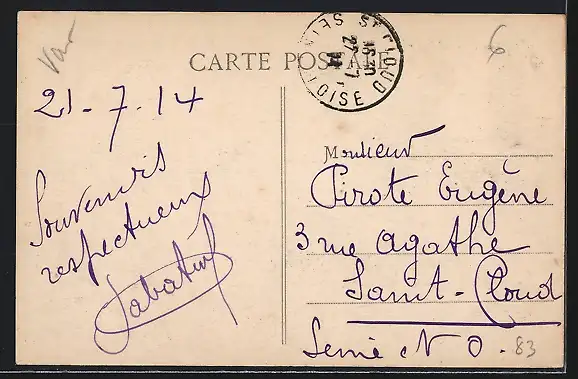 Var
6
CARTE POSTALE
ST CLOUD
16-30
27-7
14
SEINE ET OISE
21-7.14
Souvenirs
respectueux
Sabatier
Monsieur
Pirote Eugène
3 rue Agathe
Saint-Cloud
Seine & O.
83